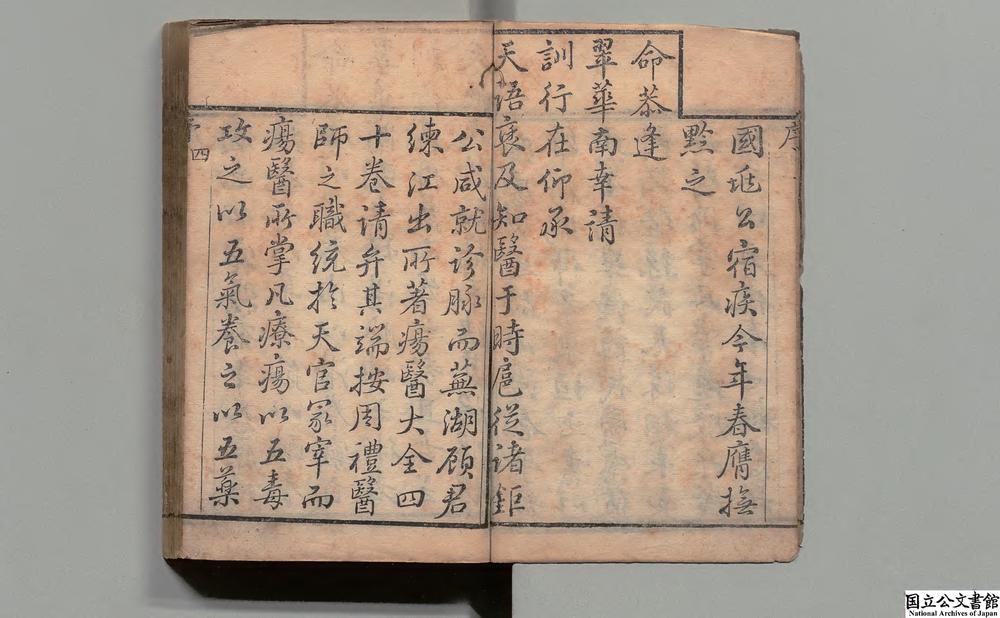 序
國兆公宿疾今年春膺撫
黔之
命恭逢
翠華南幸請
訓行在仰承
天語褒及知醫于時扈從諸鉅
公咸就診脉而蕪湖顧君
練江出所著瘍醫大全四
十卷請弁其端按周禮醫
師之職統於天官冢宰而
瘍醫所掌凡療瘍以五毒
攻之以五氣養之以五藥
四
国立公文書館
National Archives of Japan